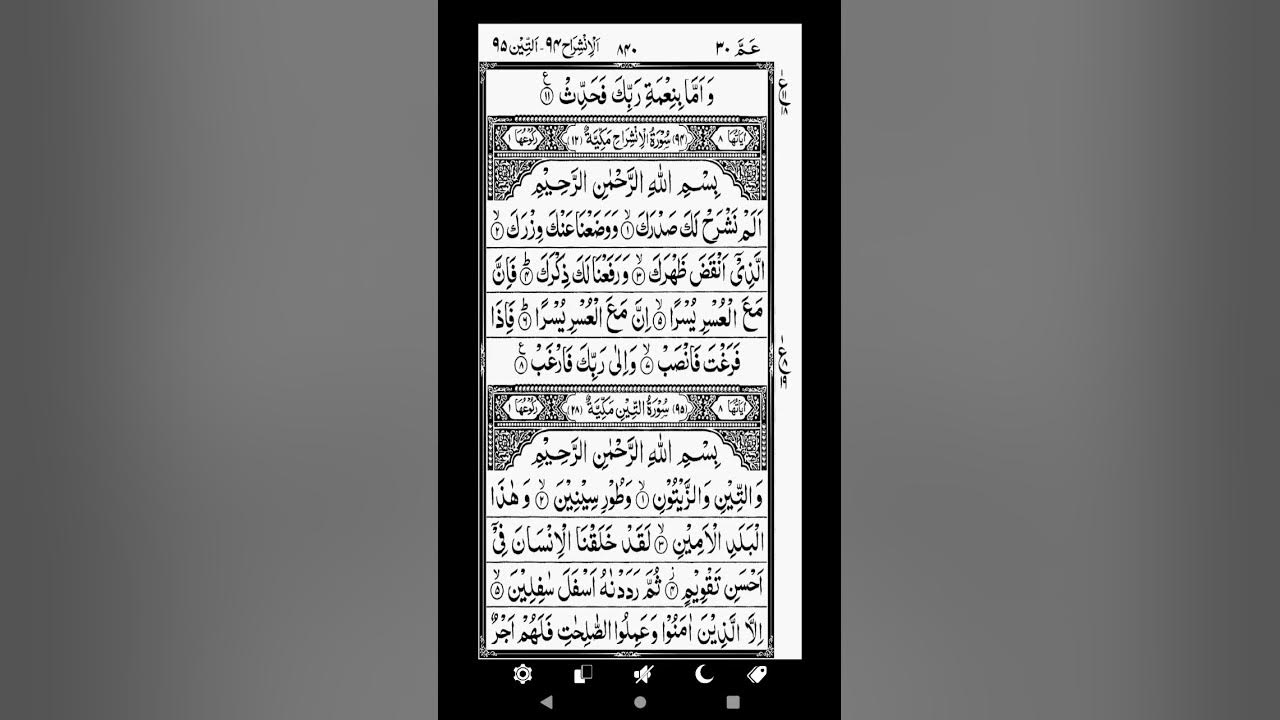 عَمَّ ۳۰ ۸۴۰ اَلْاِنْشِرَاح ۹۴ - اَلتِّيْن ۹۵
وَ اَمَّا بِنِعْمَةِ رَبِّكَ فَحَدِّثْ ۝۱۱ ع
ع ۱ ۱۱ ۱۸
اٰيَاتُهَا ۸ (۹۴) سُوْرَةُ الْاِنْشِرَاحِ مَكِّيَّةٌ (۱۲) رُكُوْعُهَا ۱
بِسْمِ اللّٰهِ الرَّحْمٰنِ الرَّحِيْمِ
اَلَمْ نَشْرَحْ لَكَ صَدْرَكَ ۝۱ۙ وَوَضَعْنَا عَنْكَ وِزْرَكَ ۝۲ۙ
الَّذِيْۤ اَنْقَضَ ظَهْرَكَ ۝۳ۙ وَرَفَعْنَا لَكَ ذِكْرَكَ ۝۴ؕ فَاِنَّ
مَعَ الْعُسْرِ يُسْرًا ۝۵ۙ اِنَّ مَعَ الْعُسْرِ يُسْرًا ۝۶ؕ فَاِذَا
فَرَغْتَ فَانْصَبْ ۝۷ۙ وَاِلٰى رَبِّكَ فَارْغَبْ ۝۸ ع
ع ۱ ۸ ۱۹
اٰيَاتُهَا ۸ (۹۵) سُوْرَةُ التِّيْنِ مَكِّيَّةٌ (۲۸) رُكُوْعُهَا ۱
بِسْمِ اللّٰهِ الرَّحْمٰنِ الرَّحِيْمِ
وَالتِّيْنِ وَالزَّيْتُوْنِ ۝۱ۙ وَطُوْرِ سِيْنِيْنَ ۝۲ۙ وَهٰذَا
الْبَلَدِ الْاَمِيْنِ ۝۳ۙ لَقَدْ خَلَقْنَا الْاِنْسَانَ فِيْۤ
اَحْسَنِ تَقْوِيْمٍ ۝۴ؗ ثُمَّ رَدَدْنٰهُ اَسْفَلَ سٰفِلِيْنَ ۝۵ۙ
اِلَّا الَّذِيْنَ اٰمَنُوْا وَعَمِلُوا الصّٰلِحٰتِ فَلَهُمْ اَجْرٌ